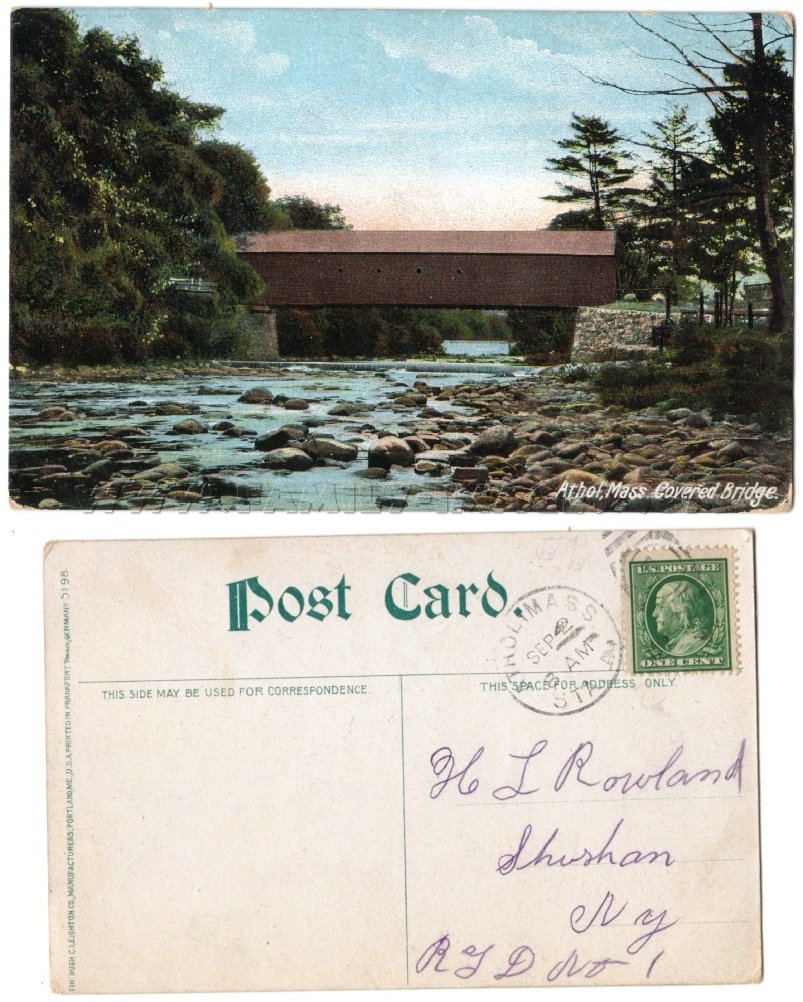 Athol, Mass. Covered Bridge.
Post Card.
U.S. POSTAGE
ONE CENT
ATHOL MASS
SEP
AM
STA
THIS SIDE MAY BE USED FOR CORRESPONDENCE.
THIS SPACE FOR ADDRESS ONLY.
H L Rowland
Shushan
N y
R F D No 1
THE HUGH C. LEIGHTON CO., MANUFACTURERS, PORTLAND, ME., U.S.A. PRINTED IN FRANKFORT GERMANY 5198